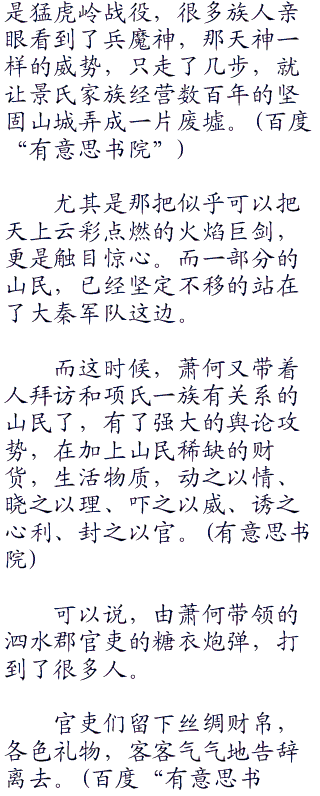 是猛虎岭战役，很多族人亲
眼看到了兵魔神，那天神一
样的威势，只走了几步，就
让景氏家族经营数百年的坚
固山城弄成一片废墟。(百度
“有意思书院”)
尤其是那把似乎可以把
天上云彩点燃的火焰巨剑，
更是触目惊心。而一部分的
山民，已经坚定不移的站在
了大秦军队这边。
而这时候，萧何又带着
人拜访和项氏一族有关系的
山民了，有了强大的舆论攻
势，在加上山民稀缺的财
货，生活物质，动之以情、
晓之以理、吓之以威、诱之
心利、封之以官。(有意思书
院)
可以说，由萧何带领的
泗水郡官吏的糖衣炮弹，打
到了很多人。
官吏们留下丝绸财帛，
各色礼物，客客气气地告辞
离去。(百度“有意思书